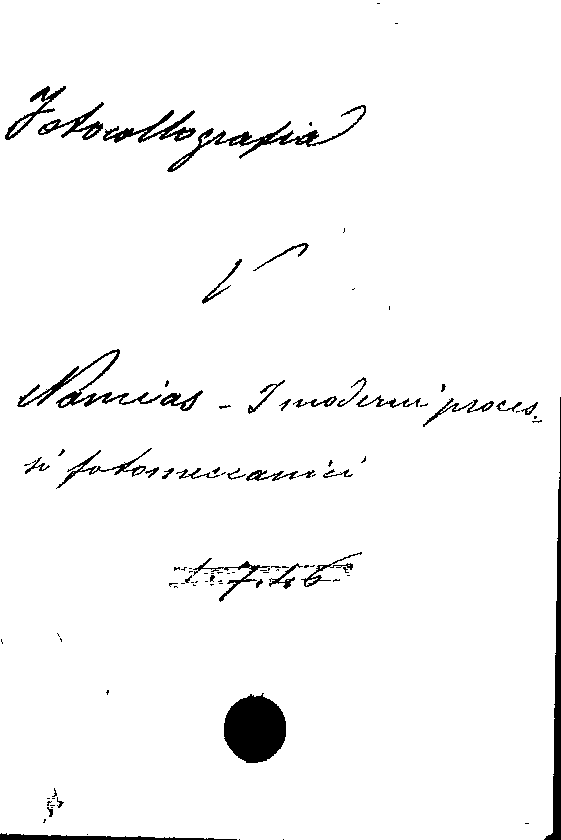 Fotocollografia
V
Namias - I moderni proces-
si fotomeccanici